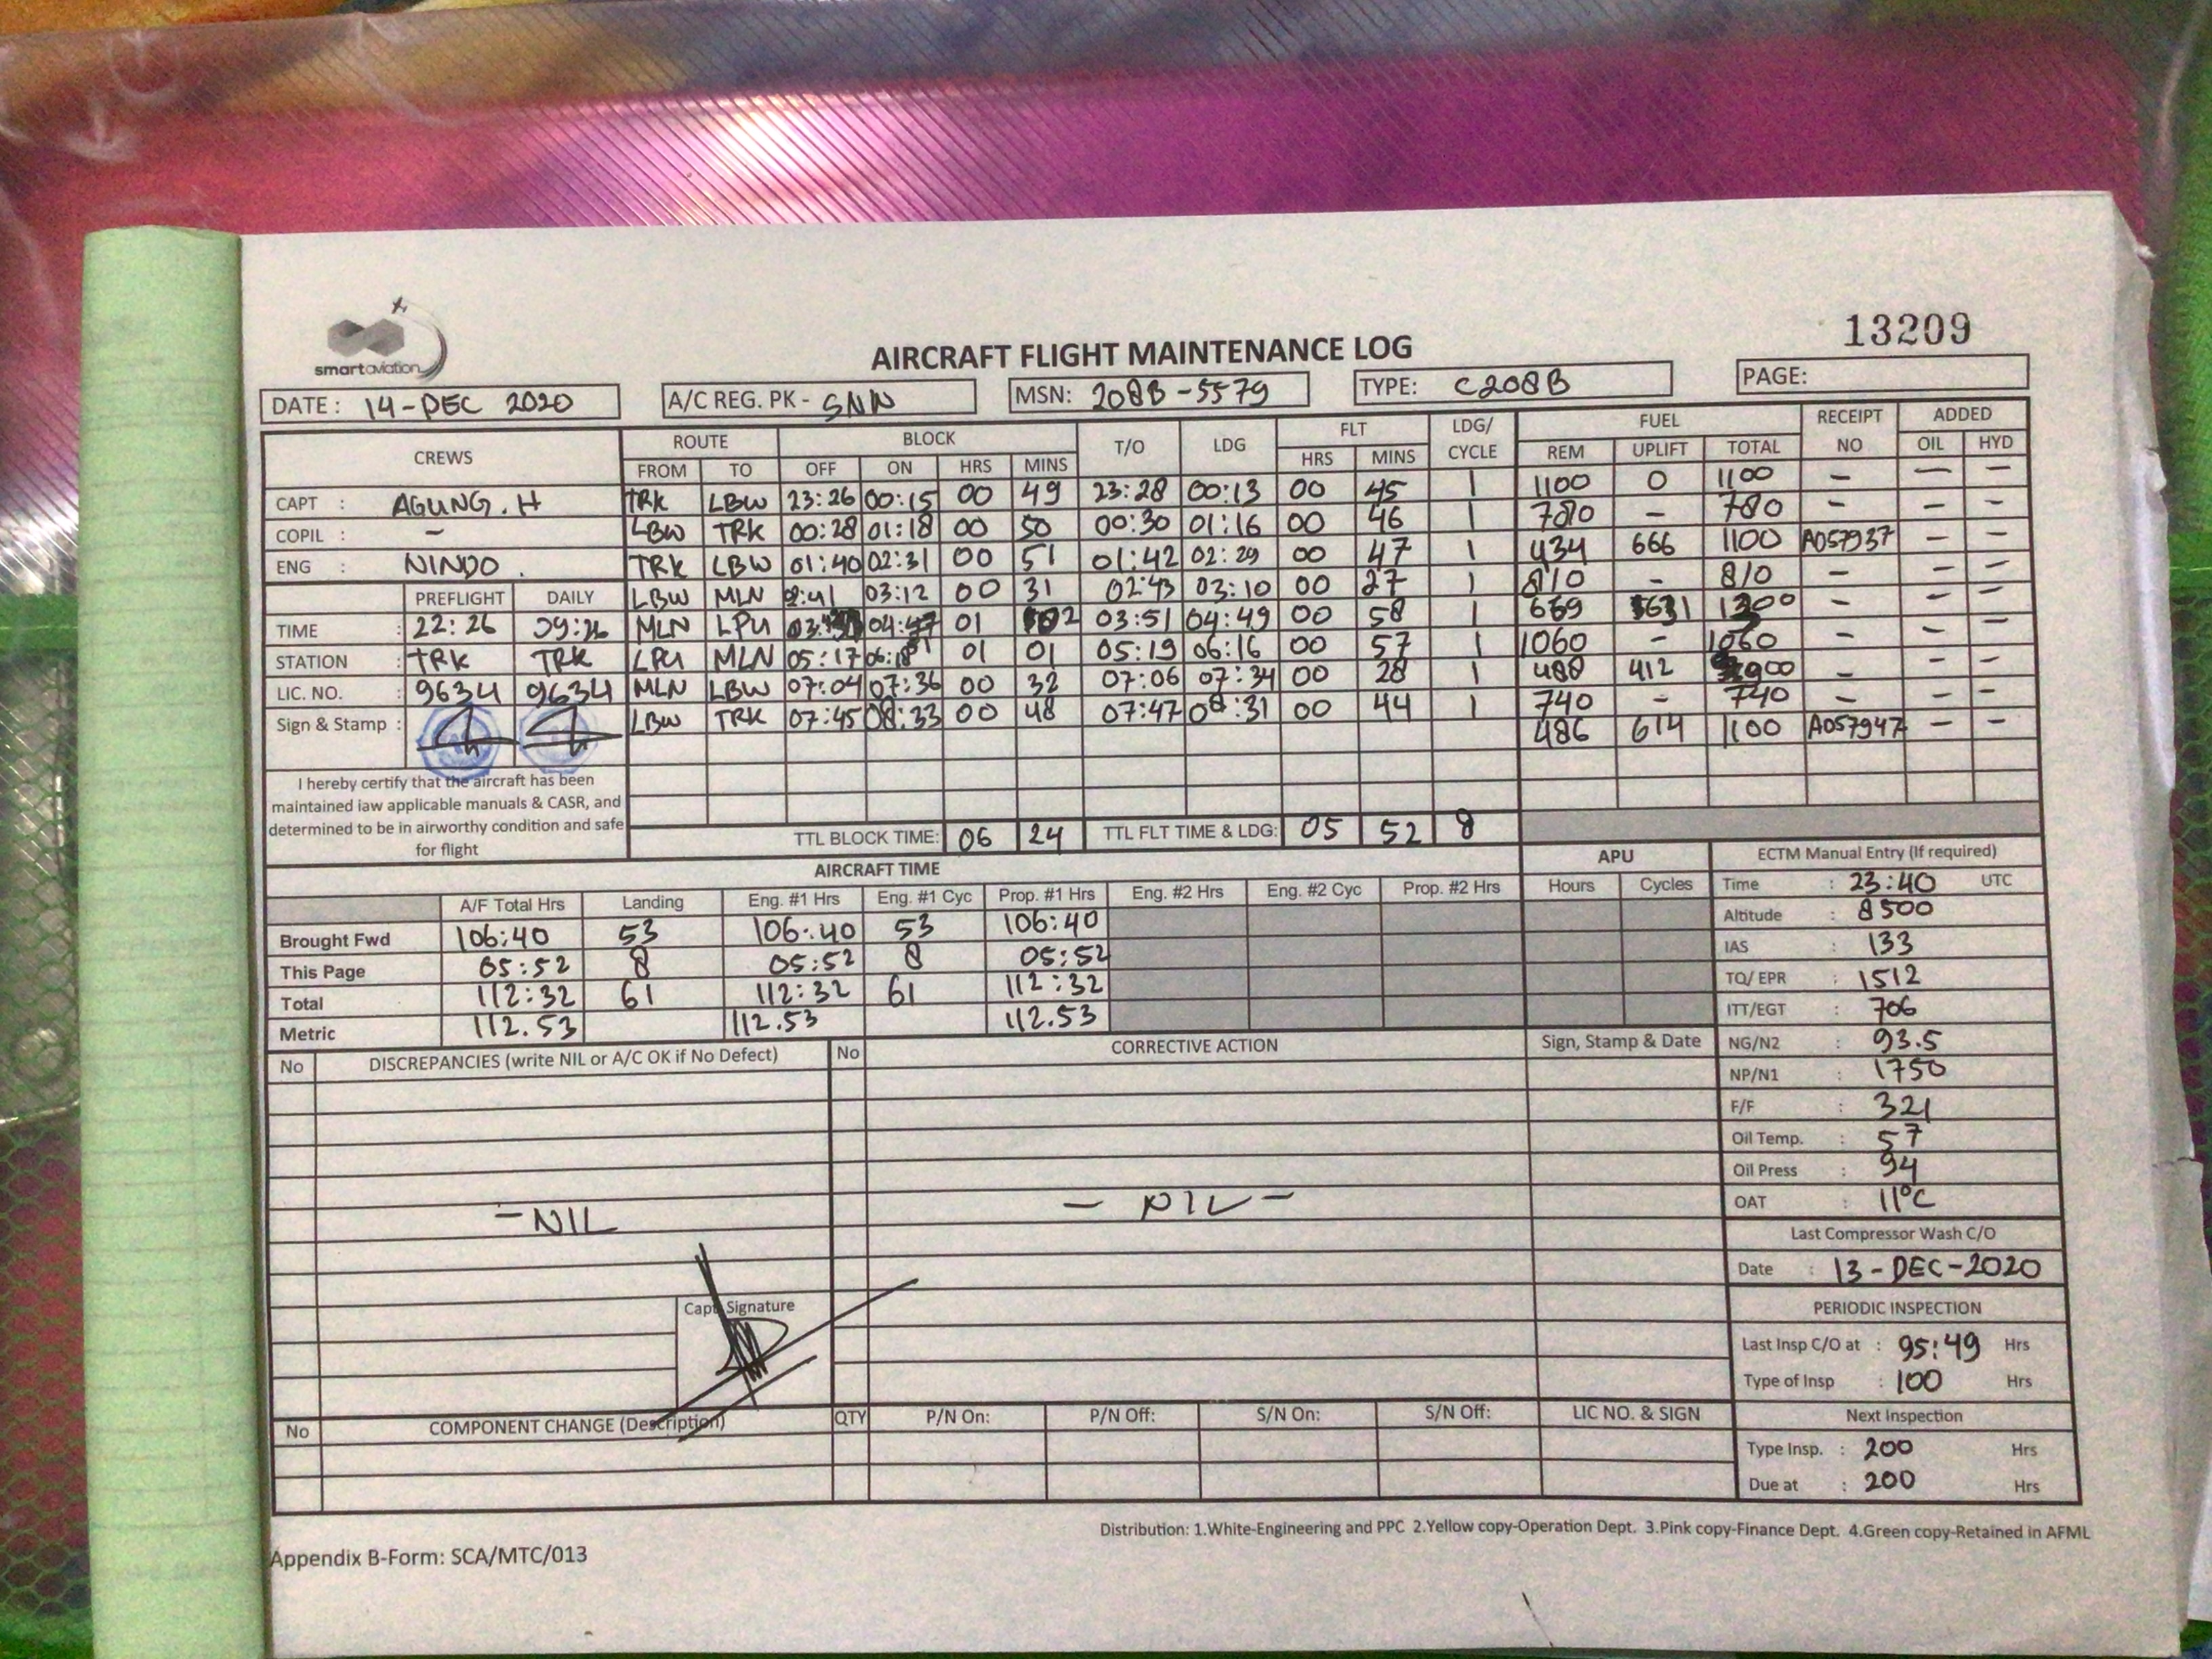 smartaviation
13209
AIRCRAFT FLIGHT MAINTENANCE LOG
DATE : 14-DEC 2020 A/C REG. PK - SNN MSN: 208B-5579 TYPE: C208B PAGE:
CREWS ROUTE BLOCK T/O LDG FLT LDG/ CYCLE FUEL RECEIPT NO ADDED
FROM TO OFF ON HRS MINS HRS MINS REM UPLIFT TOTAL OIL HYD
CAPT : AGUNG. H TRK LBW 23:26 00:15 00 49 23:28 00:13 00 45 1 1100 0 1100 - - -
COPIL : - LBW TRK 00:28 01:18 00 50 00:30 01:16 00 46 1 780 - 780 - - -
ENG : NINDO. TRK LBW 01:40 02:31 00 51 01:42 02:29 00 47 1 434 666 1100 A057937 - -
PREFLIGHT DAILY LBW MLN 02:41 03:12 00 31 02:43 03:10 00 27 1 810 - 810 - - -
TIME : 22:26 09:26 MLN LPU 01 03:51 04:49 00 58 1 669 631 1300 - - -
STATION : TRK TRK LPU MLN 05:17 01 01 05:19 06:16 00 57 1 1060 - 1060 - - -
LIC. NO. : 9634 9634 MLN LBW 07:04 07:36 00 32 07:06 07:34 00 28 1 488 412 900 - - -
Sign & Stamp : LBW TRK 07:45 08:33 00 48 07:47 08:31 00 44 1 740 - 740 - - -
486 614 1100 A057947 - -
I hereby certify that the aircraft has been
maintained iaw applicable manuals & CASR, and
determined to be in airworthy condition and safe
for flight
TTL BLOCK TIME: 06 24 TTL FLT TIME & LDG: 05 52 8
AIRCRAFT TIME APU ECTM Manual Entry (If required)
A/F Total Hrs Landing Eng. #1 Hrs Eng. #1 Cyc Prop. #1 Hrs Eng. #2 Hrs Eng. #2 Cyc Prop. #2 Hrs Hours Cycles Time : 23:40 UTC
Brought Fwd 106:40 53 106:40 53 106:40 Altitude : 8500
This Page 05:52 8 05:52 8 05:52 IAS : 133
Total 112:32 61 112:32 61 112:32 TQ/ EPR : 1512
Metric 112.53 112.53 112.53 ITT/EGT : 706
No DISCREPANCIES (write NIL or A/C OK if No Defect) No CORRECTIVE ACTION Sign, Stamp & Date NG/N2 : 93.5
NP/N1 : 1750
F/F : 321
Oil Temp. : 57
Oil Press : 94
-NIL - NIL - OAT : 11°C
Last Compressor Wash C/O
Date : 13-DEC-2020
Capt Signature PERIODIC INSPECTION
Last Insp C/O at : 95:49 Hrs
Type of Insp : 100 Hrs
No COMPONENT CHANGE (Description) QTY P/N On: P/N Off: S/N On: S/N Off: LIC NO. & SIGN Next Inspection
Type Insp. : 200 Hrs
Due at : 200 Hrs
Distribution: 1.White-Engineering and PPC 2.Yellow copy-Operation Dept. 3.Pink copy-Finance Dept. 4.Green copy-Retained in AFML
Appendix B-Form: SCA/MTC/013